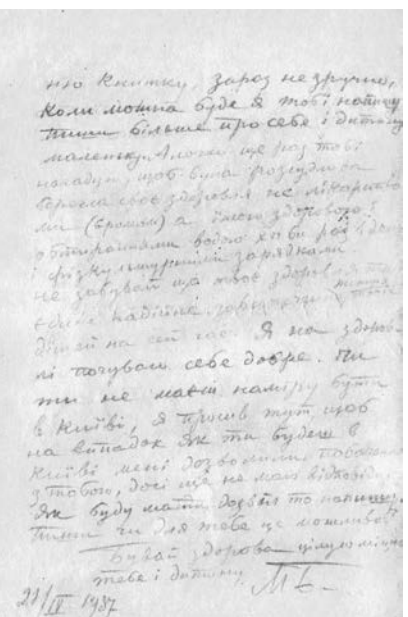 ню книжку, зараз не зручно,
коли можна буде я тобі напишу
пиши більше про себе і дитину
маленьку. А поки ще раз тобі
нагадую, щоб була розсудлива
берегла своє здоров'я не лікарствами
ми (бромом) а їжею здоровою
обтираннями водою хоч би раз в день
і фізкультурними зарядками.
не забувай що твоє здоров'я то
єдине надійне
дітей на сей час. Я на здоров
лі почуваю себе добре. Чи
ти не маєш наміру бути
в Київі, я просив тут щоб
на випадок як ти будеш в
Київі мені дозволили побачення
з тобою, досі ще не маю відповіді.
Як буду мати дозвіл то напишу.
Пиши чи для тебе це можливо?
Бувай здорова цілую міцно
тебе і дитину МБ
21/IV 1937